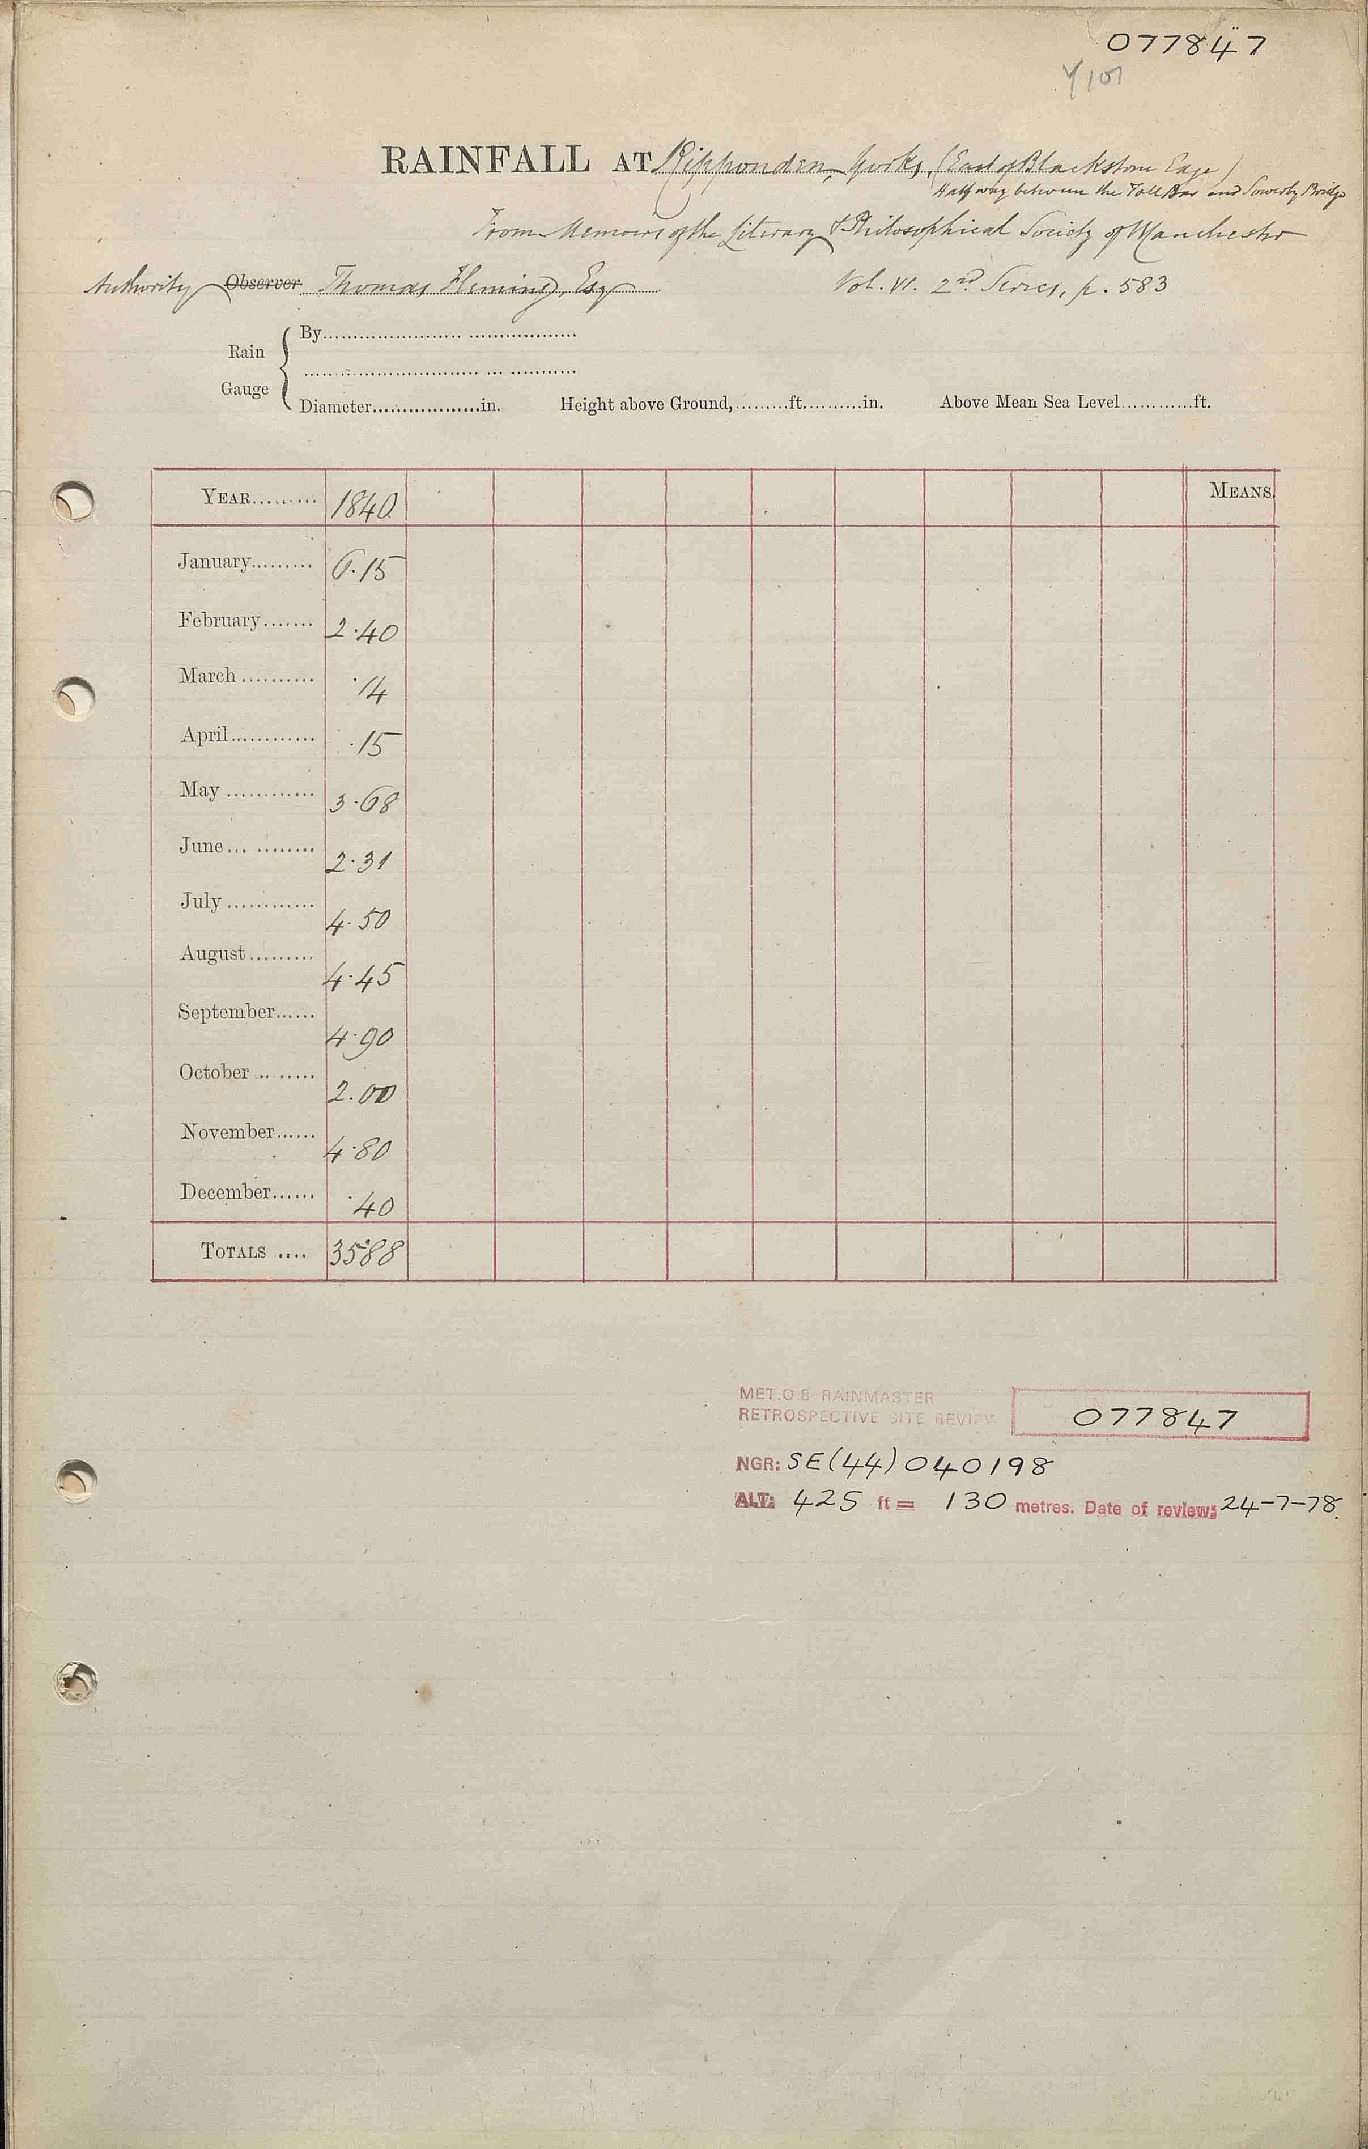 077847
Y101
RAINFALL AT Ripponden, Yorks, (East of Blackstone Edge)
Half way between the Toll Bar and Sowerby Bridge
From Memoirs of the Literary & Philosophical Society of Manchester
Authority Observer Thomas Fleming, Esq Vol. VI. 2nd Series, p. 583
Rain Gauge
By
Diameter in. Height above Ground, ft. in. Above Mean Sea Level ft.
YEAR 1840. MEANS.
January 6.15
February 2.40
March .14
April .15
May 3.68
June 2.31
July 4.50
August 4.45
September 4.90
October 2.00
November 4.80
December .40
TOTALS 35.88
MET.O.8 RAINMASTER
RETROSPECTIVE SITE REVIEW 077847
NGR: SE(44)040198
ALT: 425 ft = 130 metres. Date of review: 24-7-78.